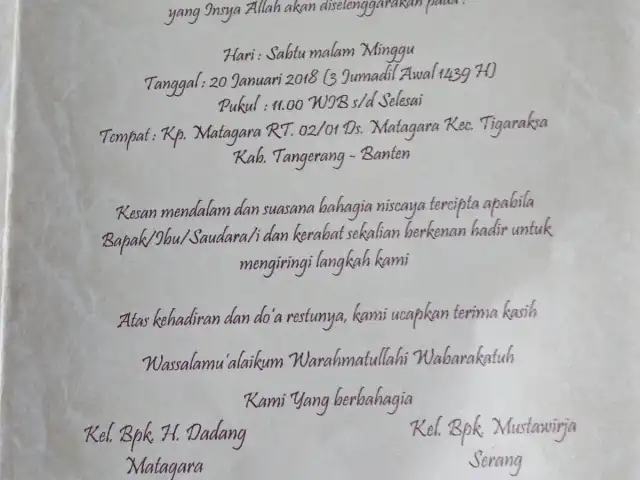 yang Insya Allah akan diselenggarakan pada :
Hari : Sabtu malam Minggu
Tanggal : 20 Januari 2018 (3 Jumadil Awal 1439 H)
Pukul : 11.00 WIB s/d Selesai
Tempat : Kp. Matagara RT. 02/01 Ds. Matagara Kec. Tigaraksa
Kab. Tangerang - Banten
Kesan mendalam dan suasana bahagia niscaya tercipta apabila
Bapak/Ibu/Saudara/i dan kerabat sekalian berkenan hadir untuk
mengiringi langkah kami
Atas kehadiran dan do'a restunya, kami ucapkan terima kasih
Wassalamu'alaikum Warahmatullahi Wabarakatuh
Kami Yang berbahagia
Kel. Bpk. H. Dadang
Matagara
Kel. Bpk. Mustawirja
Serang